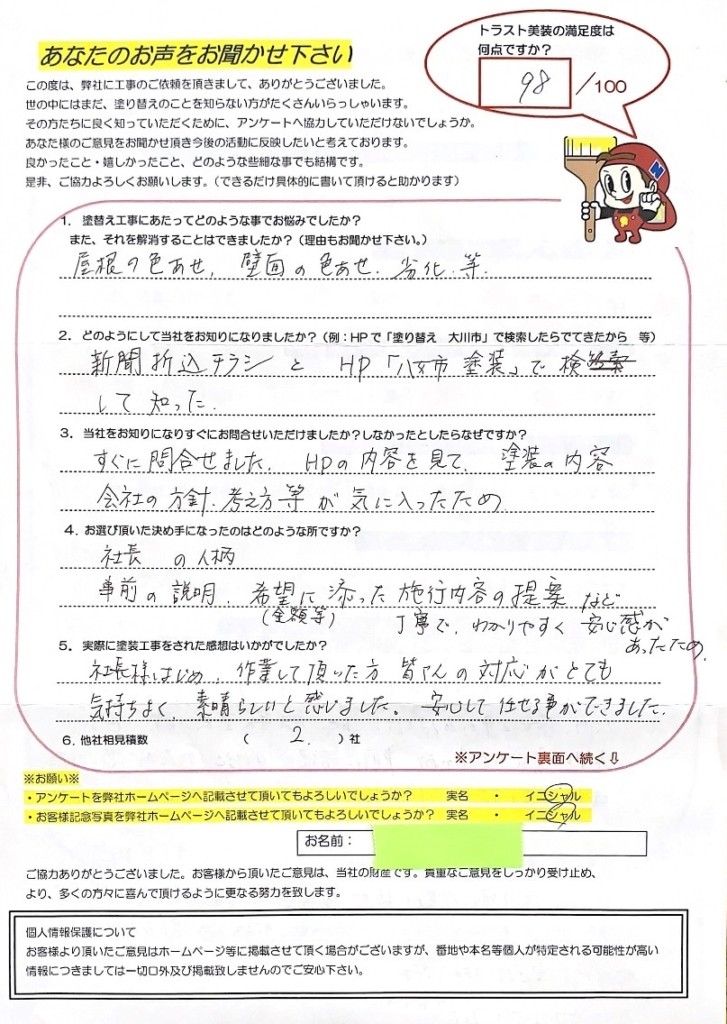 トラスト美装の満足度は
何点ですか?
98 /100
あなたのお声をお聞かせ下さい
この度は、弊社に工事のご依頼を頂きまして、ありがとうございました。
世の中にはまだ、塗り替えのことを知らない方がたくさんいらっしゃいます。
その方たちに良く知っていただくために、アンケートへ協力していただけないでしょうか。
あなた様のご意見をお聞かせ頂き今後の活動に反映したいと考えております。
良かったこと・嬉しかったこと、どのような些細な事でも結構です。
是非、ご協力よろしくお願いします。(できるだけ具体的に書いて頂けると助かります)
1. 塗替え工事にあたってどのような事でお悩みでしたか?
また、それを解消することはできましたか?(理由もお聞かせ下さい。)
屋根の色あせ, 壁面の色あせ. 劣化. 等.
2. どのようにして当社をお知りになりましたか?(例:HPで「塗り替え 大川市」で検索したらでてきたから 等)
新聞折込チラシ と HP「八女市 塗装」で 検索
して 知った.
3. 当社をお知りになりすぐにお問合せいただけましたか?しなかったとしたらなぜですか?
すぐに問合せました. HPの内容を見て. 塗装の内容
会社の方針. 考え方等 が 気に入ったため.
4. お選び頂いた決め手になったのはどのような所ですか?
社長 の人柄
事前 の 説明. 希望に 添った 施行内容の提案 など
(金額等) 丁寧で. わかりやすく 安心感が
あったため.
5. 実際に塗装工事をされた感想はいかがでしたか?
社長様はじめ. 作業して頂いた方 皆さんの 対応がとても
気持ちよく. 素晴らしいと感じました. 安心して 任せる事ができました.
6. 他社相見積数 ( 2. )社
※アンケート裏面へ続く⇩
※お願い※
・アンケートを弊社ホームページへ記載させて頂いてもよろしいでしょうか? 実名 ・ イニシャル
・お客様記念写真を弊社ホームページへ記載させて頂いてもよろしいでしょうか? 実名 ・ イニシャル
お名前:
ご協力ありがとうございました。お客様から頂いたご意見は、当社の財産です。貴重なご意見をしっかり受け止め、
より、多くの方々に喜んで頂けるように更なる努力を致します。
個人情報保護について
お客様より頂いたご意見はホームページ等に掲載させて頂く場合がございますが、番地や本名等個人が特定される可能性が高い
情報につきましては一切口外及び掲載致しませんのでご安心下さい。